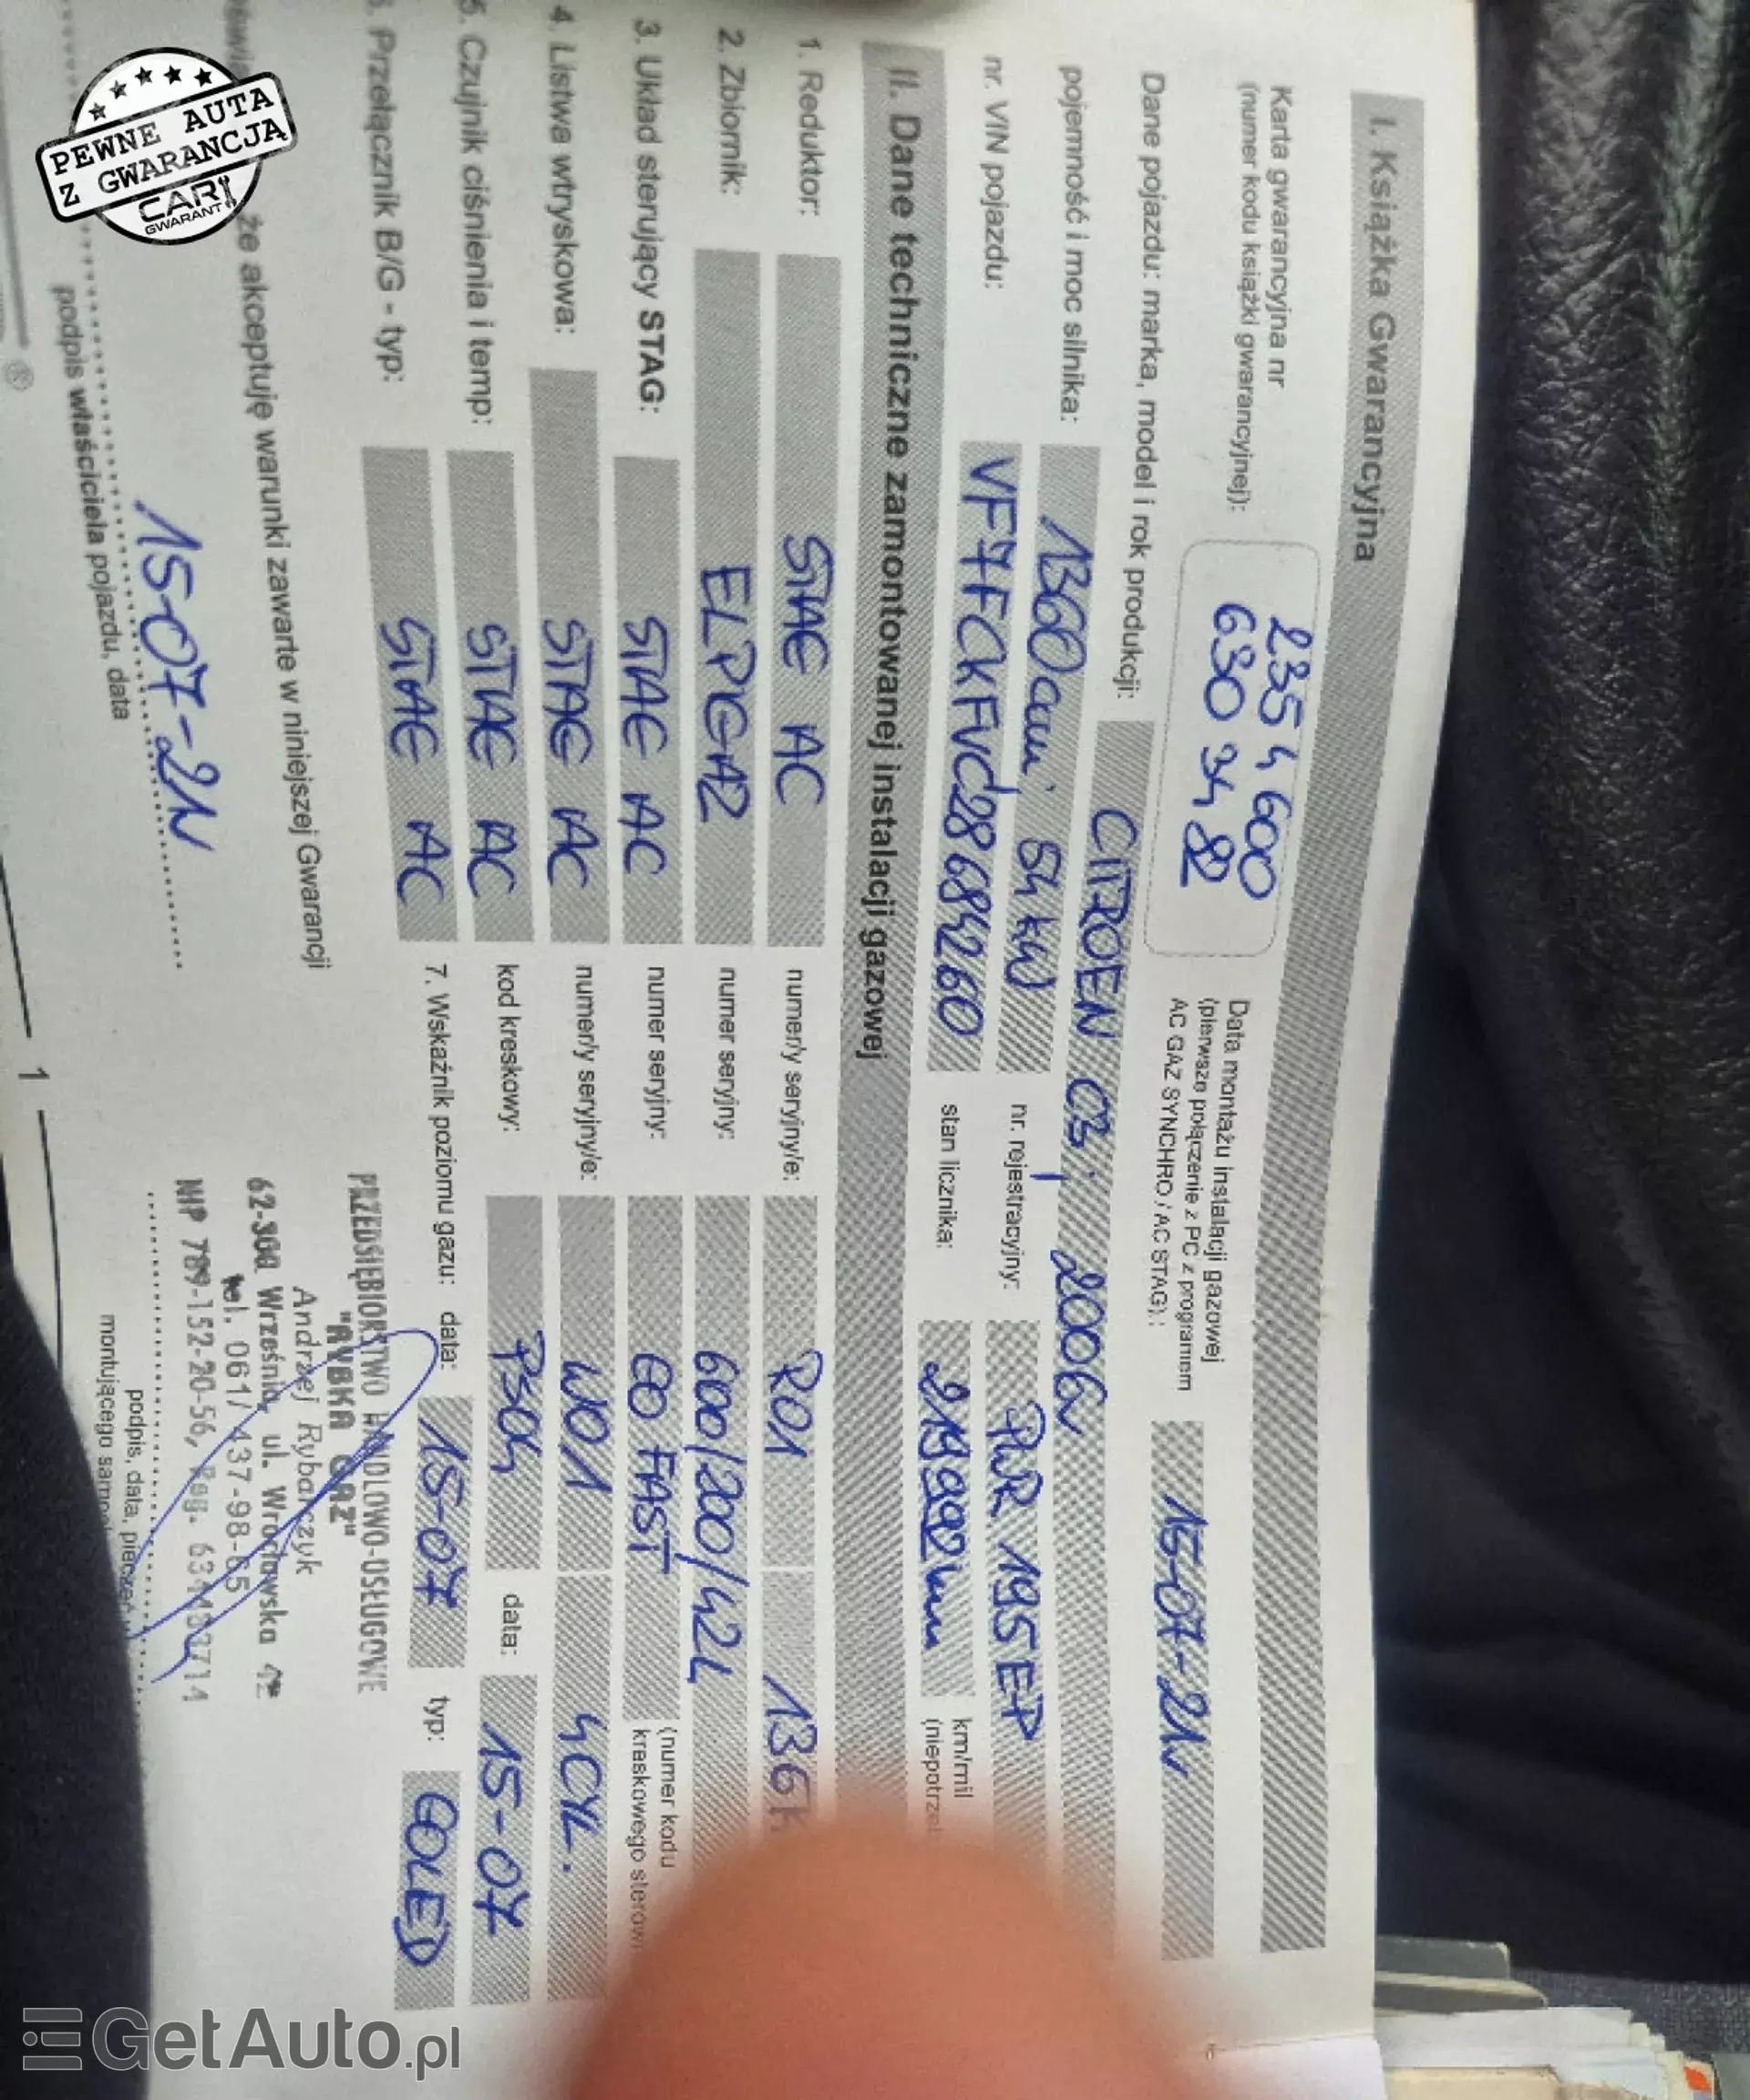 I. Książka Gwarancyjna
Karta gwarancyjna nr
(numer kodu książki gwarancyjnej):
235 4 600
630 34 82
Data montażu instalacji gazowej
(pierwsze połączenie z PC z programem
AC GAZ SYNCHRO / AC STAG):
15-07-21r
Dane pojazdu: marka, model i rok produkcji:
CITROEN C3, 2006r
pojemność i moc silnika:
1360ccm. 54 kW
nr. rejestracyjny:
PWR 195EP
nr. VIN pojazdu:
VF7FCKFVC28684260
stan licznika:
km/mil
II. Dane techniczne zamontowanej instalacji gazowej
1. Reduktor:
STAG AC
numer/y seryjny/e:
R01
2. Zbiornik:
ELPIGAZ
numer seryjny:
600/200/42L
3. Układ sterujący STAG:
STAG AC
numer seryjny:
GO FAST
(numer kodu
4. Listwa wtryskowa:
STAG AC
numer/y seryjny/e:
W01
4CYL.
5. Czujnik ciśnienia i temp:
STAG AC
kod kreskowy:
PS04
data:
15-07
6. Przełącznik B/G - typ:
STAG AC
7. Wskaźnik poziomu gazu:
data:
15-07
typ:
GOLED
że akceptuję warunki zawarte w niniejszej Gwarancji
15-07-21r
podpis właściciela pojazdu, data
PRZEDSIĘBIORSTWO HANDLOWO-USŁUGOWE
"RYBKA GAZ"
Andrzej Rybarczyk
62-300 Września, ul. Wrocławska 42
tel. 061/ 437-98-65
NIP 789-152-20-56, Reg.
podpis, data,
montującego
1
PEWNE AUTA
Z GWARANCJĄ
CAR
GWARANT
GetAuto.pl